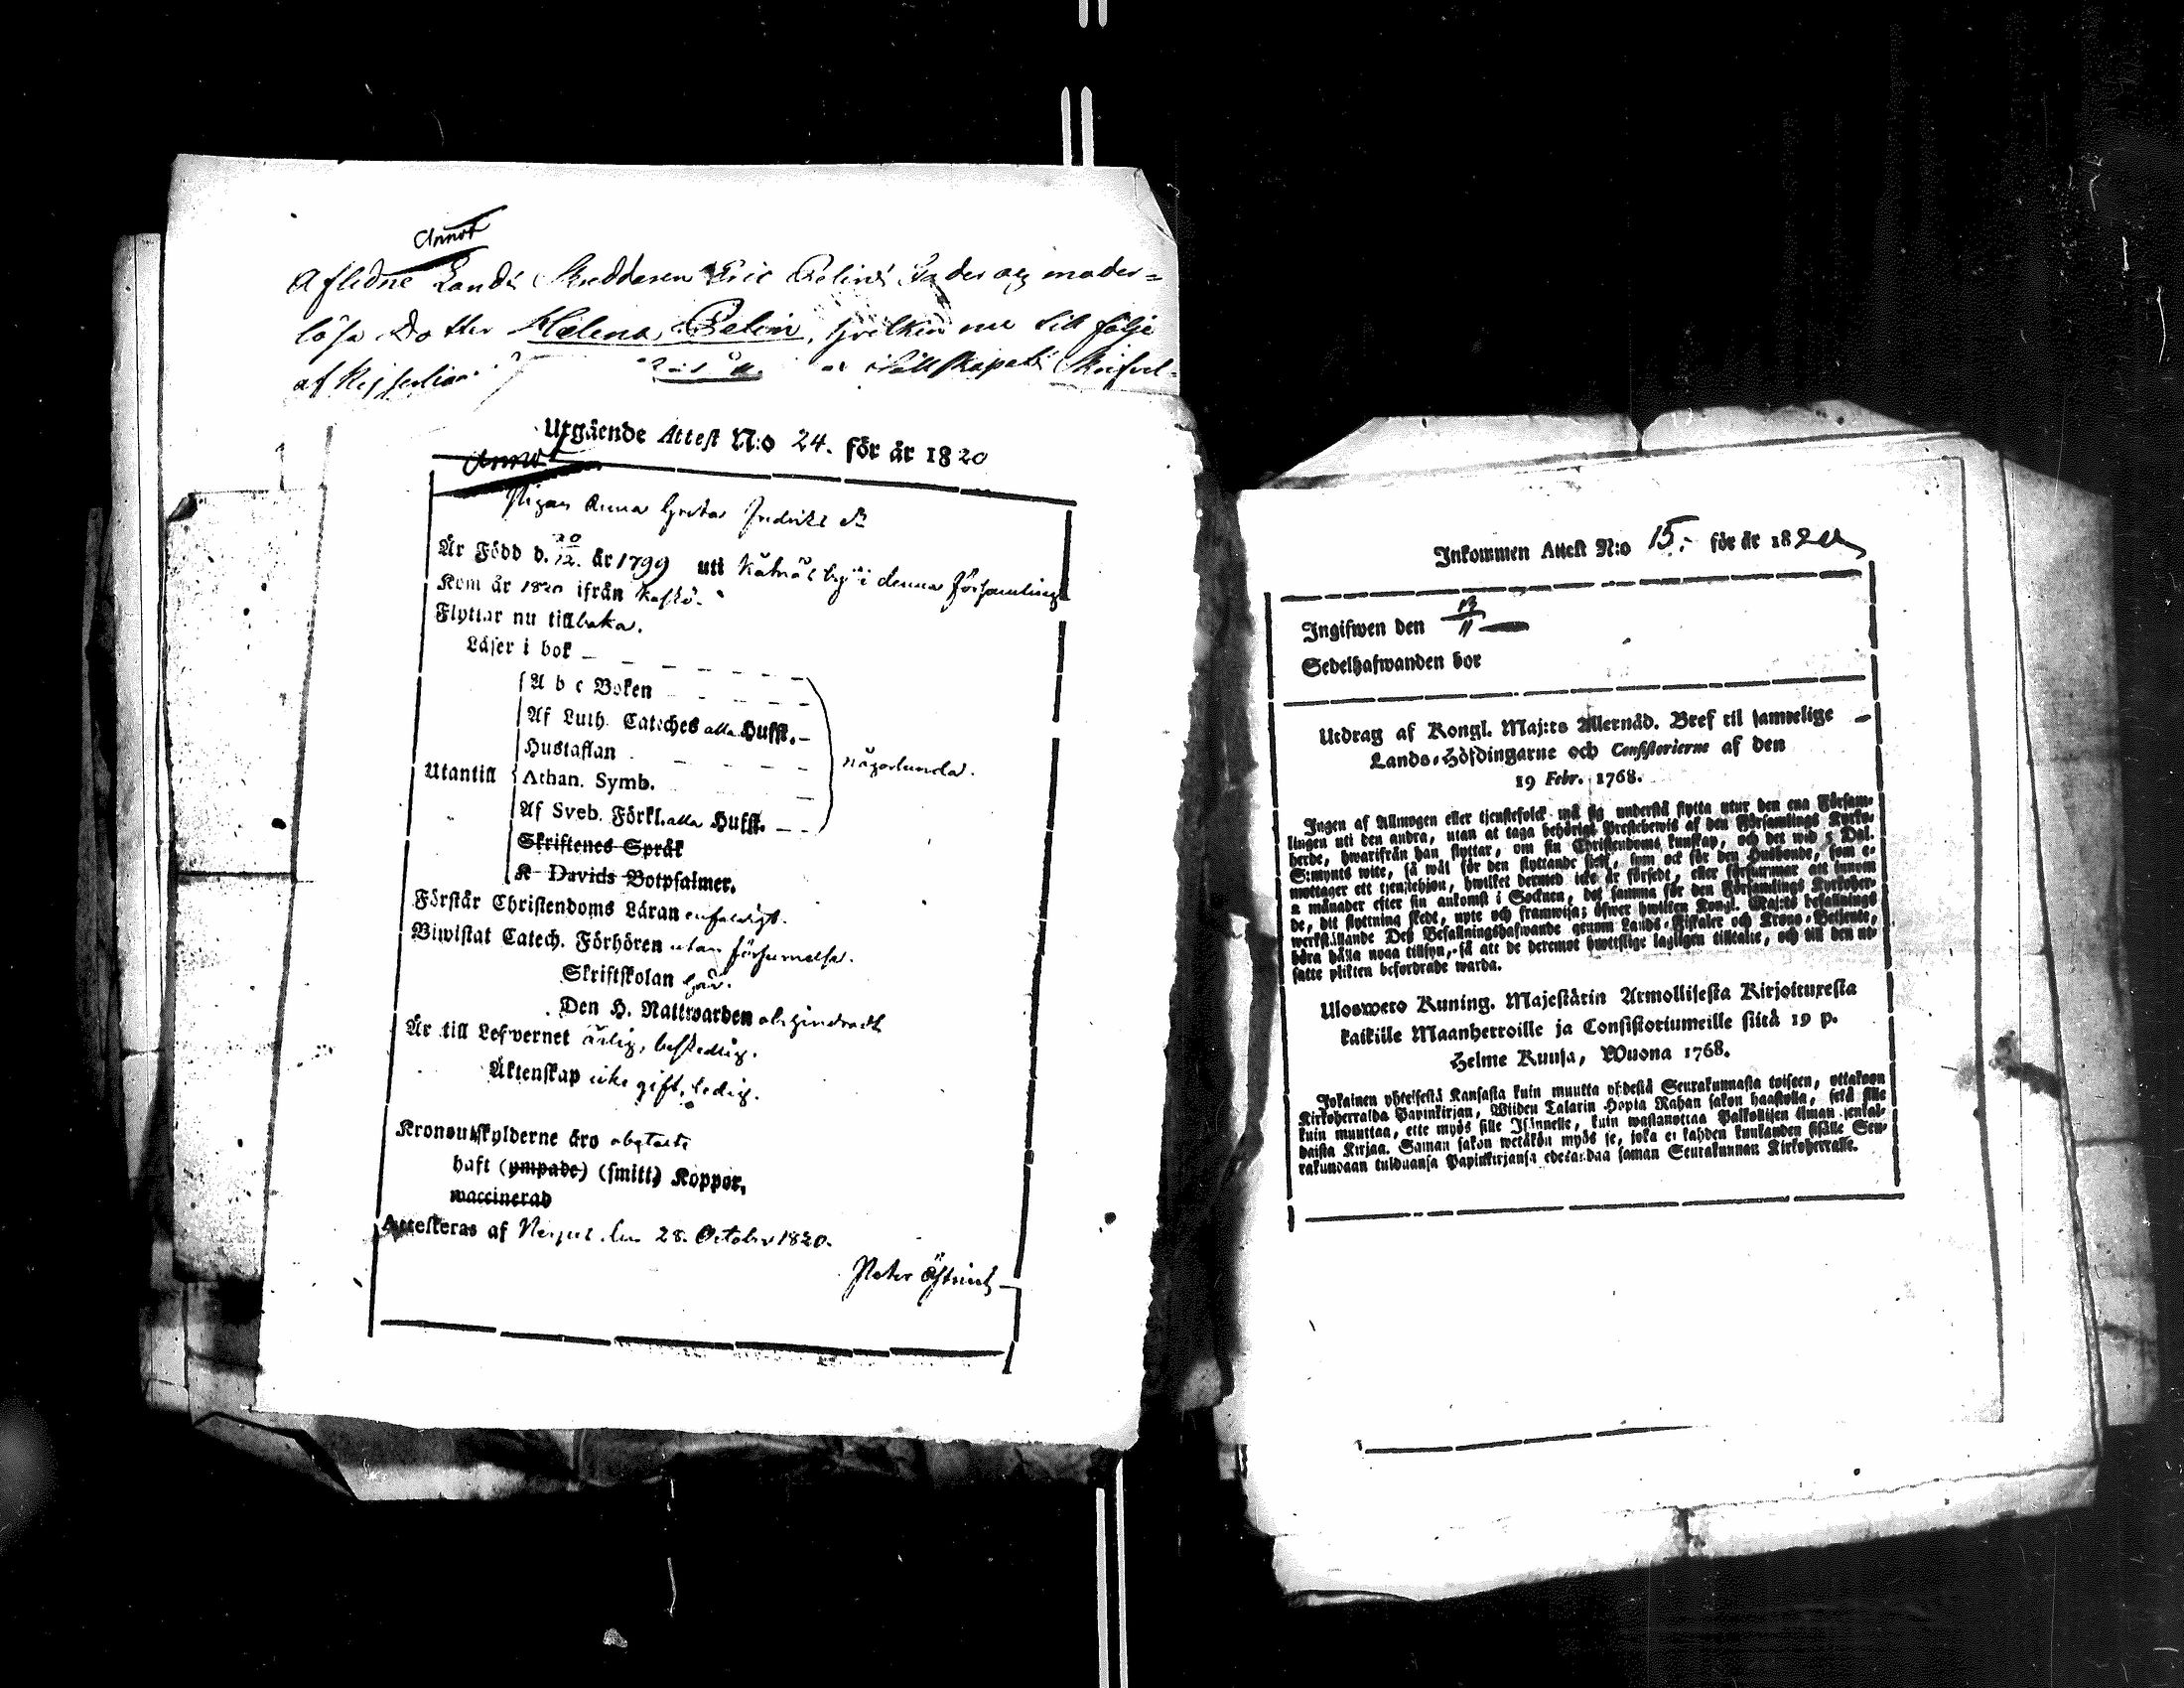 Annot
Afledne Lands Skräddaren Eric Pelins fader och moder-
lösa Dotter Helena Pelin, hvilken nu till följe
af Sällskapets Skrifvel-
Utgående Attest N:o 24. för år 1820
Annot
Pigan Anna Greta
Är Född d. 20/12. år 1799 uti by i denna församling
Kom år 1820 ifrån Kaskö.
Flyttar nu tillbaka.
Läser i bok
A b c Boken
Af Luth. Cateches alla Hufst.
Hustaflan
någorlunda.
Utantill
Athan. Symb.
Af Sveb. Förkl. alla Hufst.
Skriftenes Språk
K Davids Botpsalmer.
Förstår Christendoms Läran enfaldigt.
Biwistat Catech. Förhören utan försummelse.
Skriftskolan här.
Den H. Nattwarden ohindradt
Är till Lefvernet ärlig, beskedlig.
Äktenskap icke gift, ledig.
Kronoutskylderne äro abgtarte
haft (ympade) (smitt) Koppor,
waccinerad
Attesteras af Nerpes den 28. October 1820.
Peter
Inkommen Attest N:o 15. för år 1820
Ingifwen den 13/11
Sedelhafwanden bor
Utdrag af Kongl. Maj:ts Allernåd. Bref til samtelige
Lands-Höfdingarne och Consistorierne af den
19 Febr. 1768.
Ingen af Allmogen eller tjenstefolck må sig understå flytta utur den ena Försam-
lingen uti den andra, utan at taga behörigt Prestebewis af den Församlings Kyrko-
herde, hwarifrån han flyttar, om sin Christendoms kunskap, och det wid 5 Dal.
S:mynts wite, så wäl för den flyttande sjelf, som ock för den Husbonde, som e-
mottager ett tjenstehjon, hwilket dermed icke är försedt, eller försummar att innom
2 månader efter sin ankomst i Socknen, det samma för den Församlings Kyrkoher-
de, dit flyttning skedt, upte och framwisa; öfwer hwilken Kongl. Maj:ts befallnings
werkställande Dess Befallningshafwande genom Lands-Fiskaler och Krono-Betjente,
böra hålla noga tillsyn, så att de deremot brottslige lagligen tilltalte, och till den ut-
satte plikten befordrade warda.
Uloswето Kuning. Majestätin Armollisesta Kirjoituxesta
kaikille Maanherroille ja Consistoriumeille siitä 19 p.
Helme Kuusa, Wuona 1768.
Jokainen yhteisestä Kansasta kuin muutta yhdestä Seurakunnasta toiseen, ottakoon
Kirkoherralda Papinkirjan, Wiiden Talarin Hopia Rahan sakon haastolla, sekä sille
kuin muuttaa, ette myös sille Isännelle, kuin wastanottaa Palkollisen ilman senkal-
daista Kirjaa. Saman sakon wetäkön myös se, joka ei kahden kuukauden sisälle Seu-
rakundaan tulduansa Papinkirjansa edesandaa saman Seurakunnan Kirkoherralle.